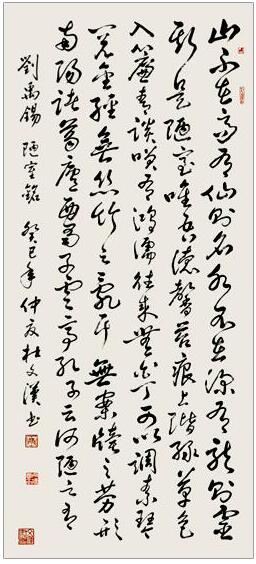 山不在高有仙則名水不在深有龍則靈
斯是陋室唯吾德馨苔痕上階綠草色
入簾青談笑有鴻儒往來無白丁可以調素琴
閱金經無絲竹之亂耳無案牘之勞形
南陽諸葛廬西蜀子雲亭孔子云何陋之有
劉禹錫 陋室銘 癸巳年 仲夏 杜文漢书